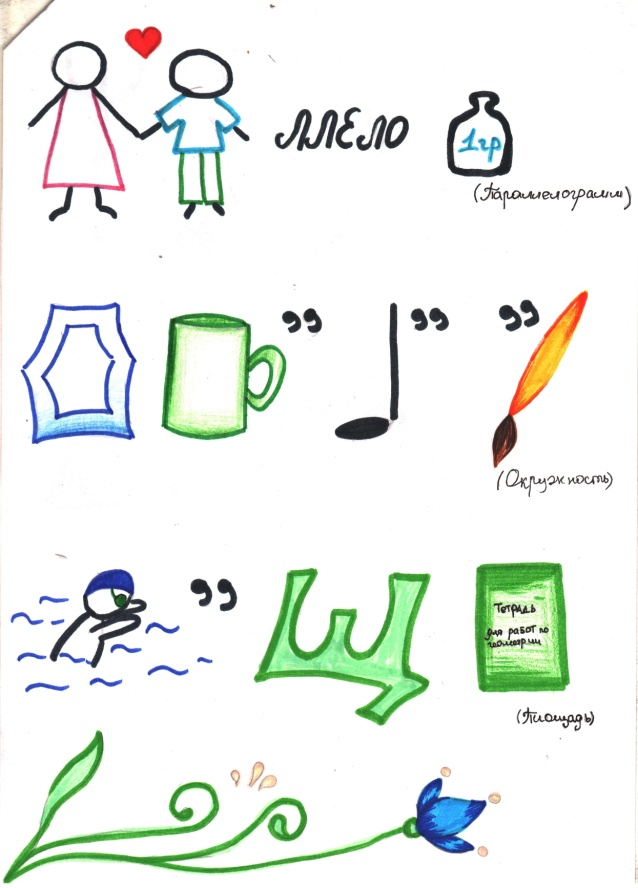 ЛЛЕЛО 1гр
(Параллелограмм)
О ,, ,, ,,
(Окружность)
,, Щ
Тетрадь
для работ по
геометрии
(Площадь)